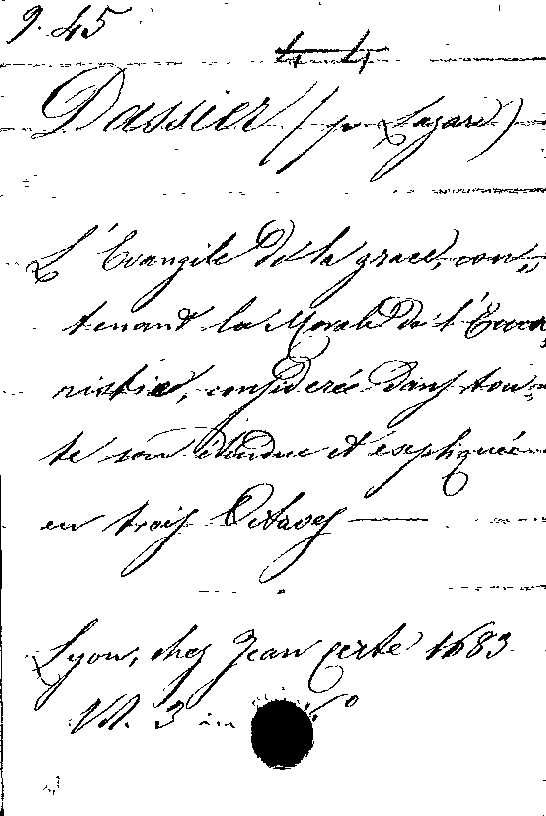 9. 45
44
Dassier (p. Lazare)
L'Evangile de la grace, con-
tenant la Morale de l'Eucha
ristie, considerée dans tou-
te son étendue et expliquée
en trois Octaves —
Lyon, chez Jean Certe 1683
Vol. 3 in